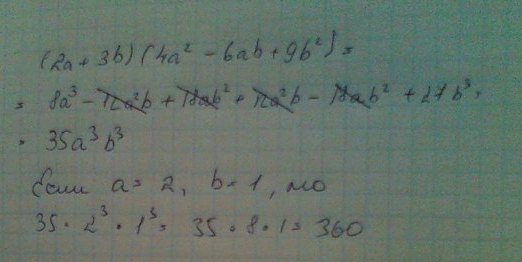 (2a + 3b) (4a² - 6ab + 9b²) =
= 8a³ - 12a²b + 18ab² + 12a²b - 18ab² + 27b³ =
= 35a³b³
Если a = 2, b = 1, то
35 · 2³ · 1³ = 35 · 8 · 1 = 360